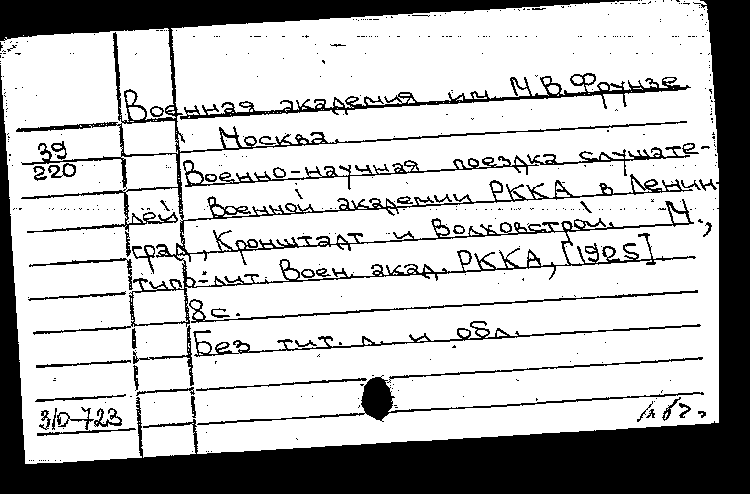 Военная академия им. М.В.Фрунзе
39
220
Москва.
Военно-научная поездка слушате-
лей Военной академии РККА в Ленин-
град, Кронштадт и Волховстрой. М.,
типо-лит. Воен. акад. РККА, [1925].
8с.
Без тит. л. и обл.
3/0-723